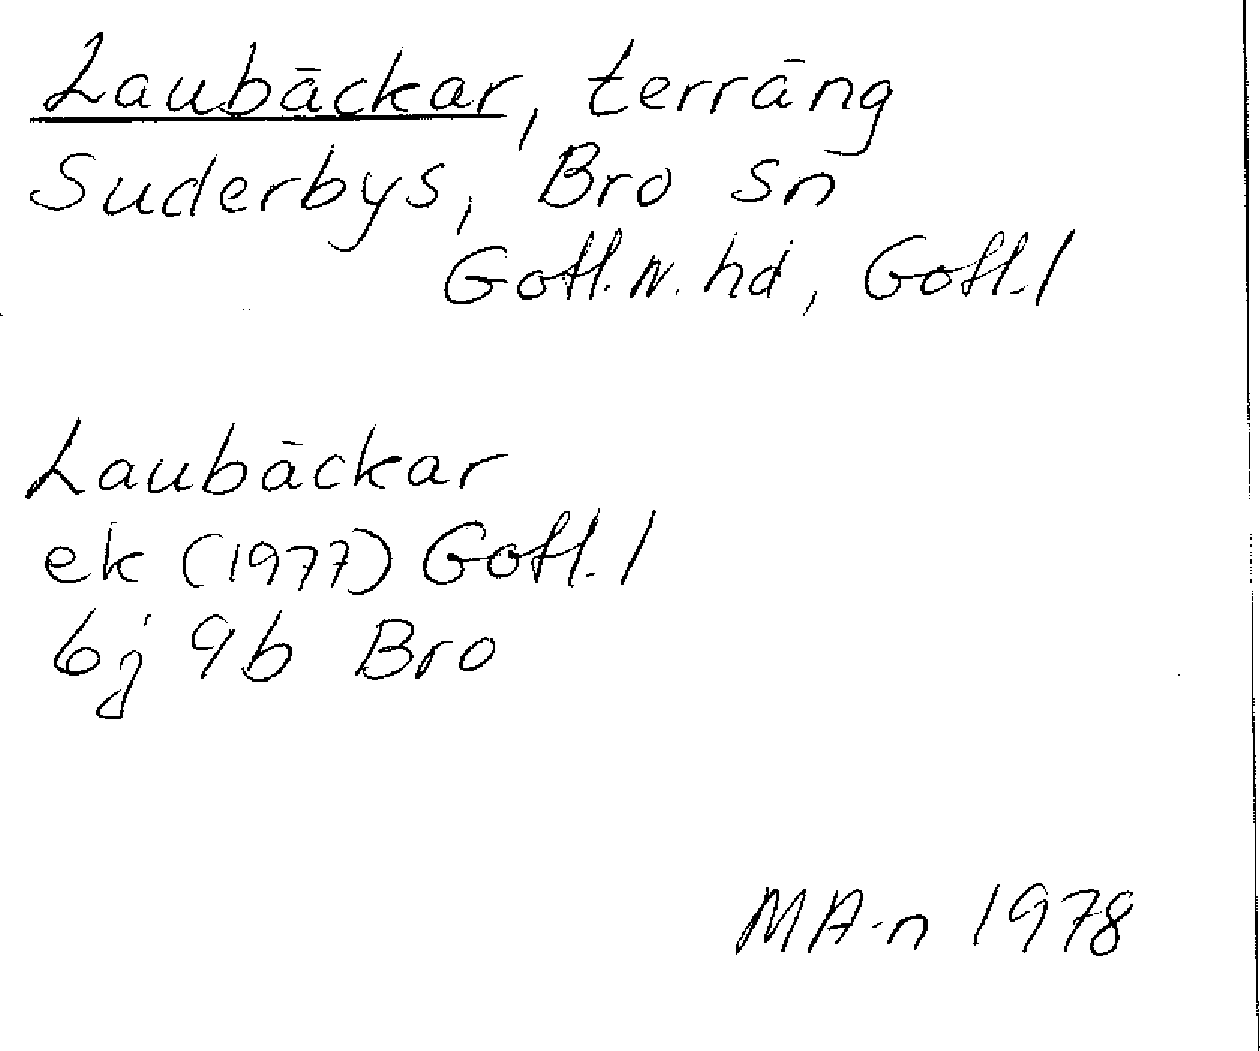 Laubäckar, terräng
Suderbys, Bro sn
Gotl. N. hd, Gotl. l
Laubäckar
ek (1977) Gotl. l
6j 9b Bro
MA-n 1978